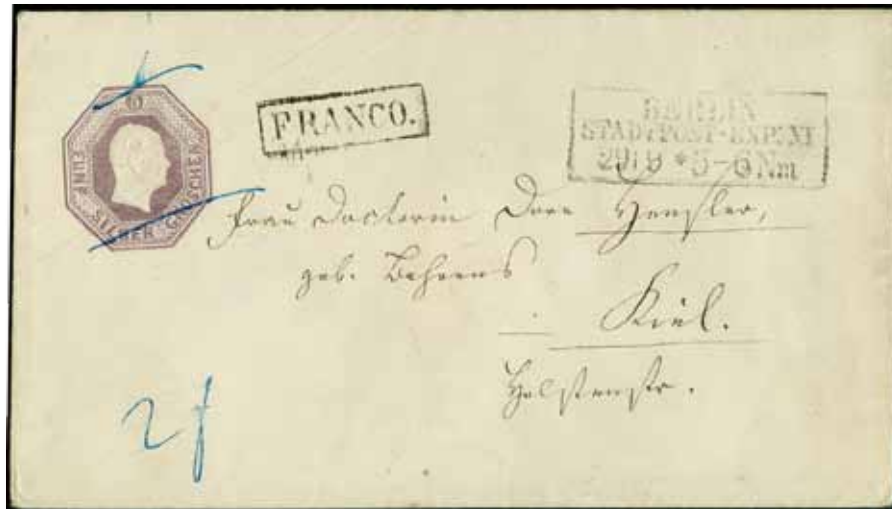 5
FÜNF SILBER GROSCHEN
FRANCO.
BERLIN
STADTPOST-EXP. XI
29/9 * 5-6 Nm
Frau Doctorin Dore Hensler,
geb. Behrens
Kiel.
Holstenstr.